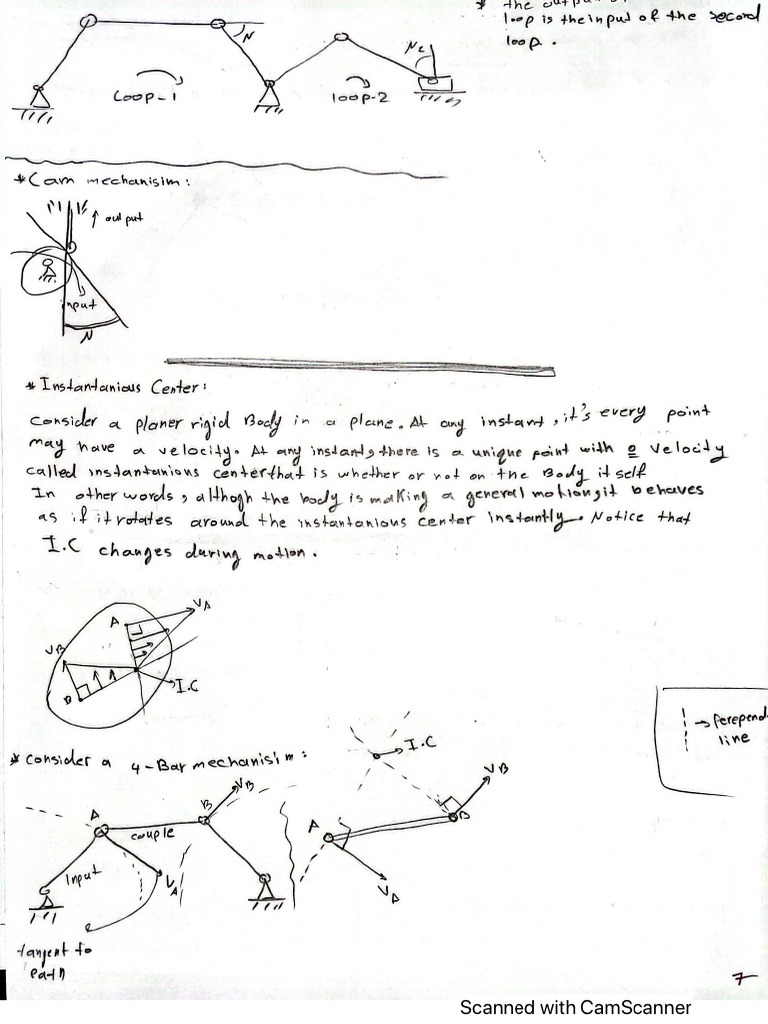 * the output of
loop is the input of the second
loop.
N
N2
Loop-1
loop-2
*Cam mechanisim:
↑ output
input
N
* Instantanious Center:
Consider a planer rigid Body in a plane. At any instant, it's every point
may have a velocity. At any instant, there is a unique point with 0 velocity
called instantanious center that is whether or not on the Body it self
In other words, althogh the body is making a general motion, it behaves
as if it rotates around the instantanious center instantly. Notice that
I.C changes during motion.
A
VA
VB
B
I.C
→ Perepend
line
* consider a 4-Bar mechanisim:
I.C
A
B
VB
couple
Input
VA
A
B
VB
VA
tangent to
path
7
Scanned with CamScanner